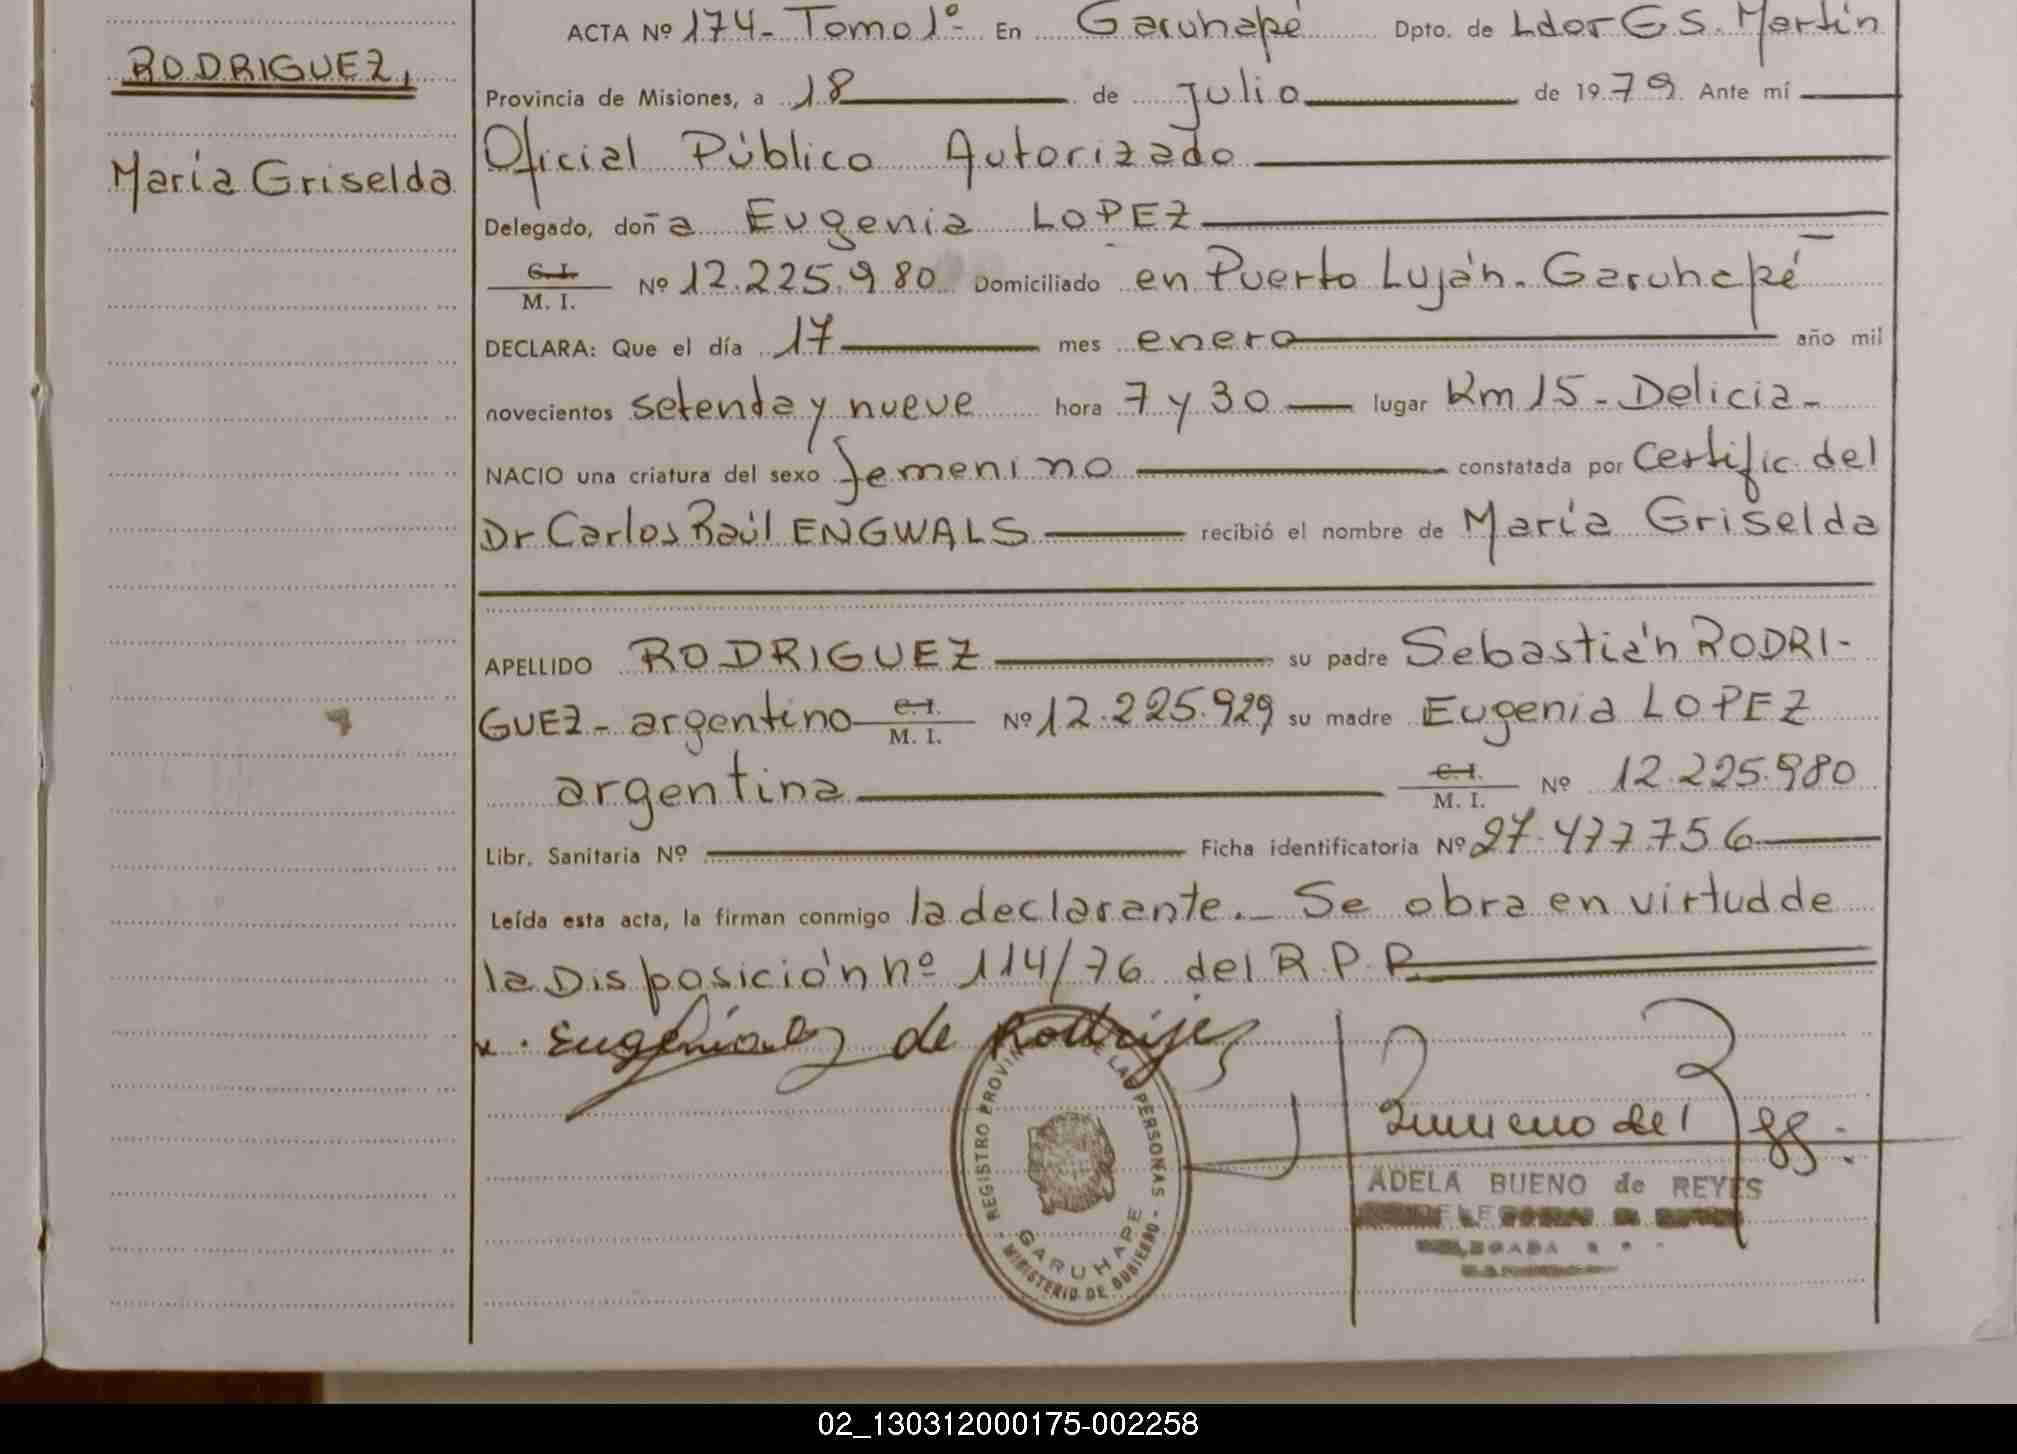 RODRIGUEZ,
María Griselda
ACTA Nº 174- Tomo 1º- En Garuhapé Dpto. de Ldor G S. Martín
Provincia de Misiones, a 18 de julio de 1979. Ante mí
Oficial Público Autorizado
Delegado, doña Eugenia LOPEZ
C. I. / M. I. Nº 12.225.980 Domiciliado en Puerto Luján. Garuhapé
DECLARA: Que el día 17 mes enero año mil
novecientos setenta y nueve hora 7 y 30 lugar Km 15 - Delicia -
NACIO una criatura del sexo femenino constatada por Certific. del
Dr Carlos Raúl ENGWALS recibió el nombre de María Griselda
APELLIDO RODRIGUEZ su padre Sebastián RODRI-
GUEZ - argentino C. I. / M. I. Nº 12.225.929 su madre Eugenia LOPEZ
argentina C. I. / M. I. Nº 12.225.980
Libr. Sanitaria Nº Ficha identificatoria Nº 27.477756
Leída esta acta, la firman conmigo la declarante._ Se obra en virtud de
la Disposición nº 114/76 del R. P. P.
Eugenia de Rodrijes
REGISTRO PROVINCIAL DE LAS PERSONAS
GARUHAPE
- MINISTERIO DE GOBIERNO -
ADELA BUENO de REYES
DELEGADA
02_130312000175-002258